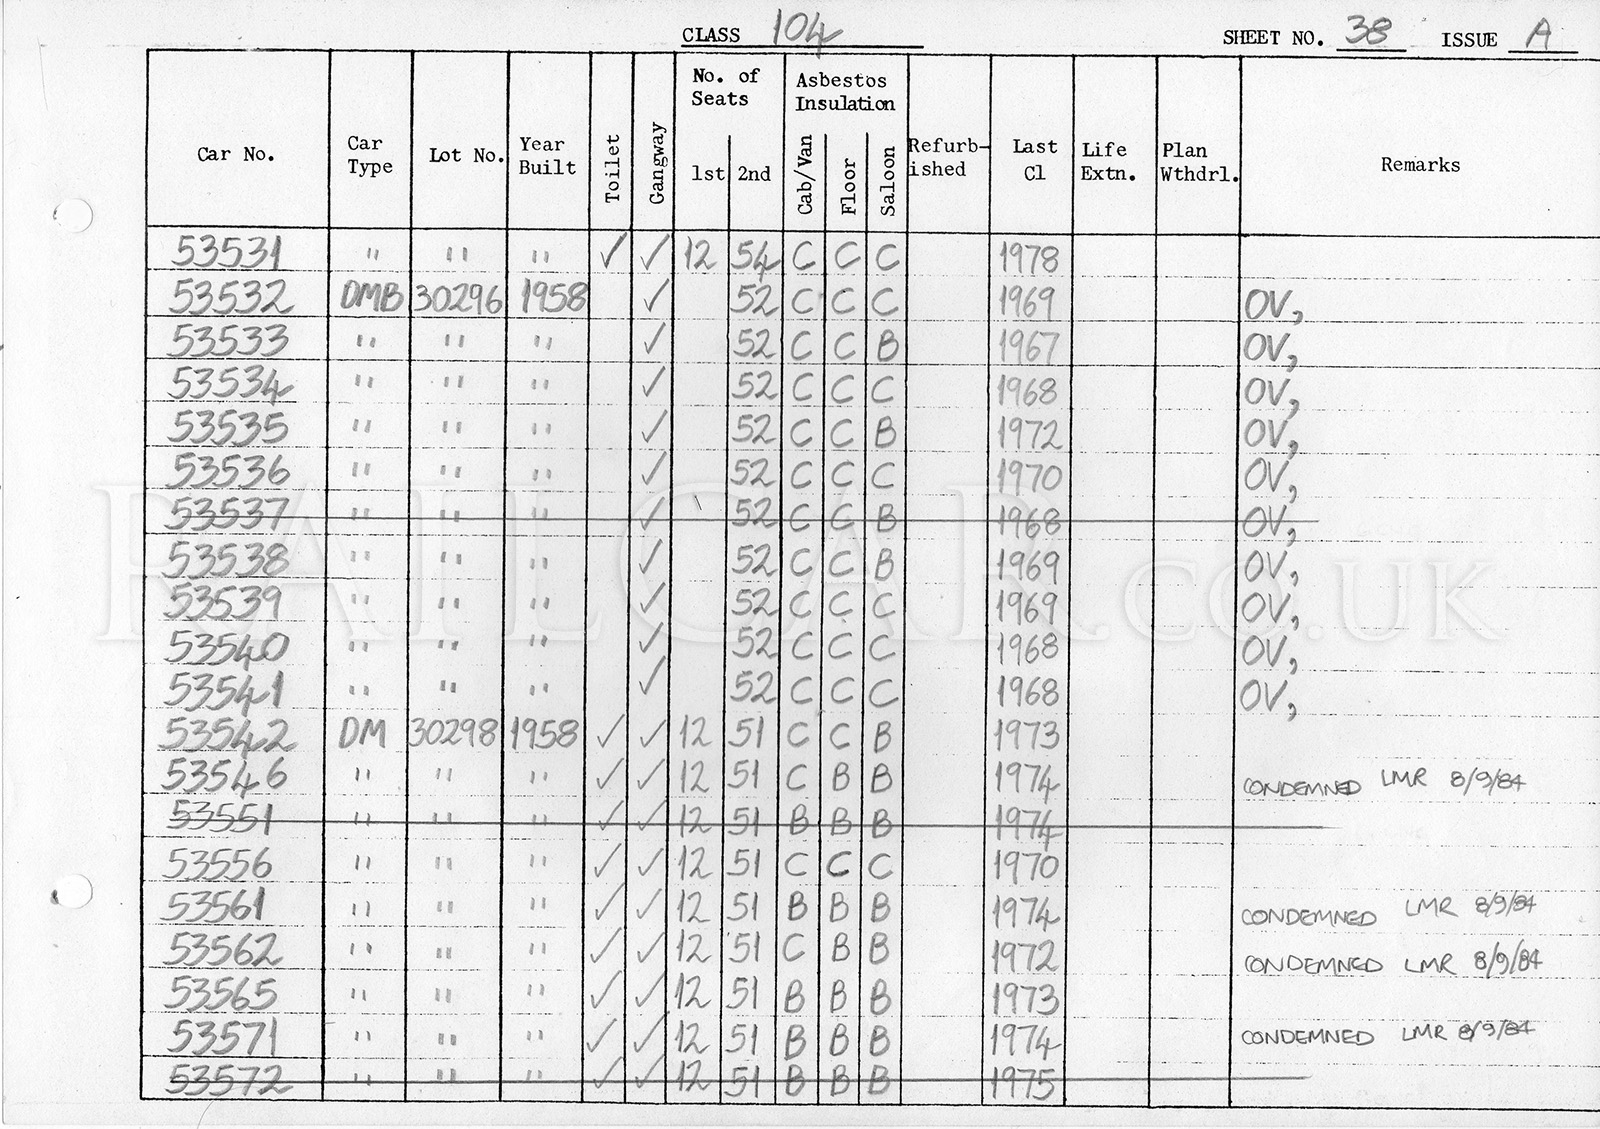 CLASS 104 SHEET NO. 38 ISSUE A
Car No. Car Type Lot No. Year Built Toilet Gangway No. of Seats 1st 2nd Asbestos Insulation Cab/Van Floor Saloon Refurb-ished Last Cl Life Extn. Plan Wthdrl. Remarks
53531 " " " ✓ ✓ 12 54 C C C 1978
53532 DMB 30296 1958 ✓ 52 C C C 1969 OV,
53533 " " " ✓ 52 C C B 1967 OV,
53534 " " " ✓ 52 C C C 1968 OV,
53535 " " " ✓ 52 C C B 1972 OV,
53536 " " " ✓ 52 C C C 1970 OV,
53537 " " " ✓ 52 C C B 1968 OV,
53538 " " " ✓ 52 C C B 1969 OV,
53539 " " " ✓ 52 C C C 1969 OV,
53540 " " " ✓ 52 C C C 1968 OV,
53541 " " " ✓ 52 C C C 1968 OV,
53542 DM 30298 1958 ✓ ✓ 12 51 C C B 1973
53546 " " " ✓ ✓ 12 51 C B B 1974 CONDEMNED LMR 8/9/84
53551 " " " ✓ ✓ 12 51 B B B 1974
53556 " " " ✓ ✓ 12 51 C C C 1970
53561 " " " ✓ ✓ 12 51 B B B 1974 CONDEMNED LMR 8/9/84
53562 " " " ✓ ✓ 12 51 C B B 1972 CONDEMNED LMR 8/9/84
53565 " " " ✓ ✓ 12 51 B B B 1973
53571 " " " ✓ ✓ 12 51 B B B 1974 CONDEMNED LMR 8/9/84
53572 " " " ✓ ✓ 12 51 B B B 1975
RAILCAR.CO.UK